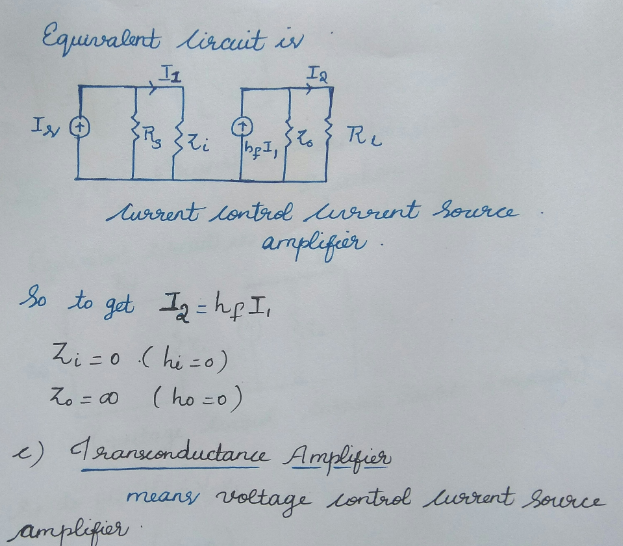 Equivalent circuit is
I1 I2
Is Rs Zi hfI1 Zo RL
Current control current source
amplifier.
So to get I2 = hf I1
Zi = 0 (hi = 0)
Zo = ∞ (ho = 0)
c) Transconductance Amplifier
means voltage control current source
amplifier.